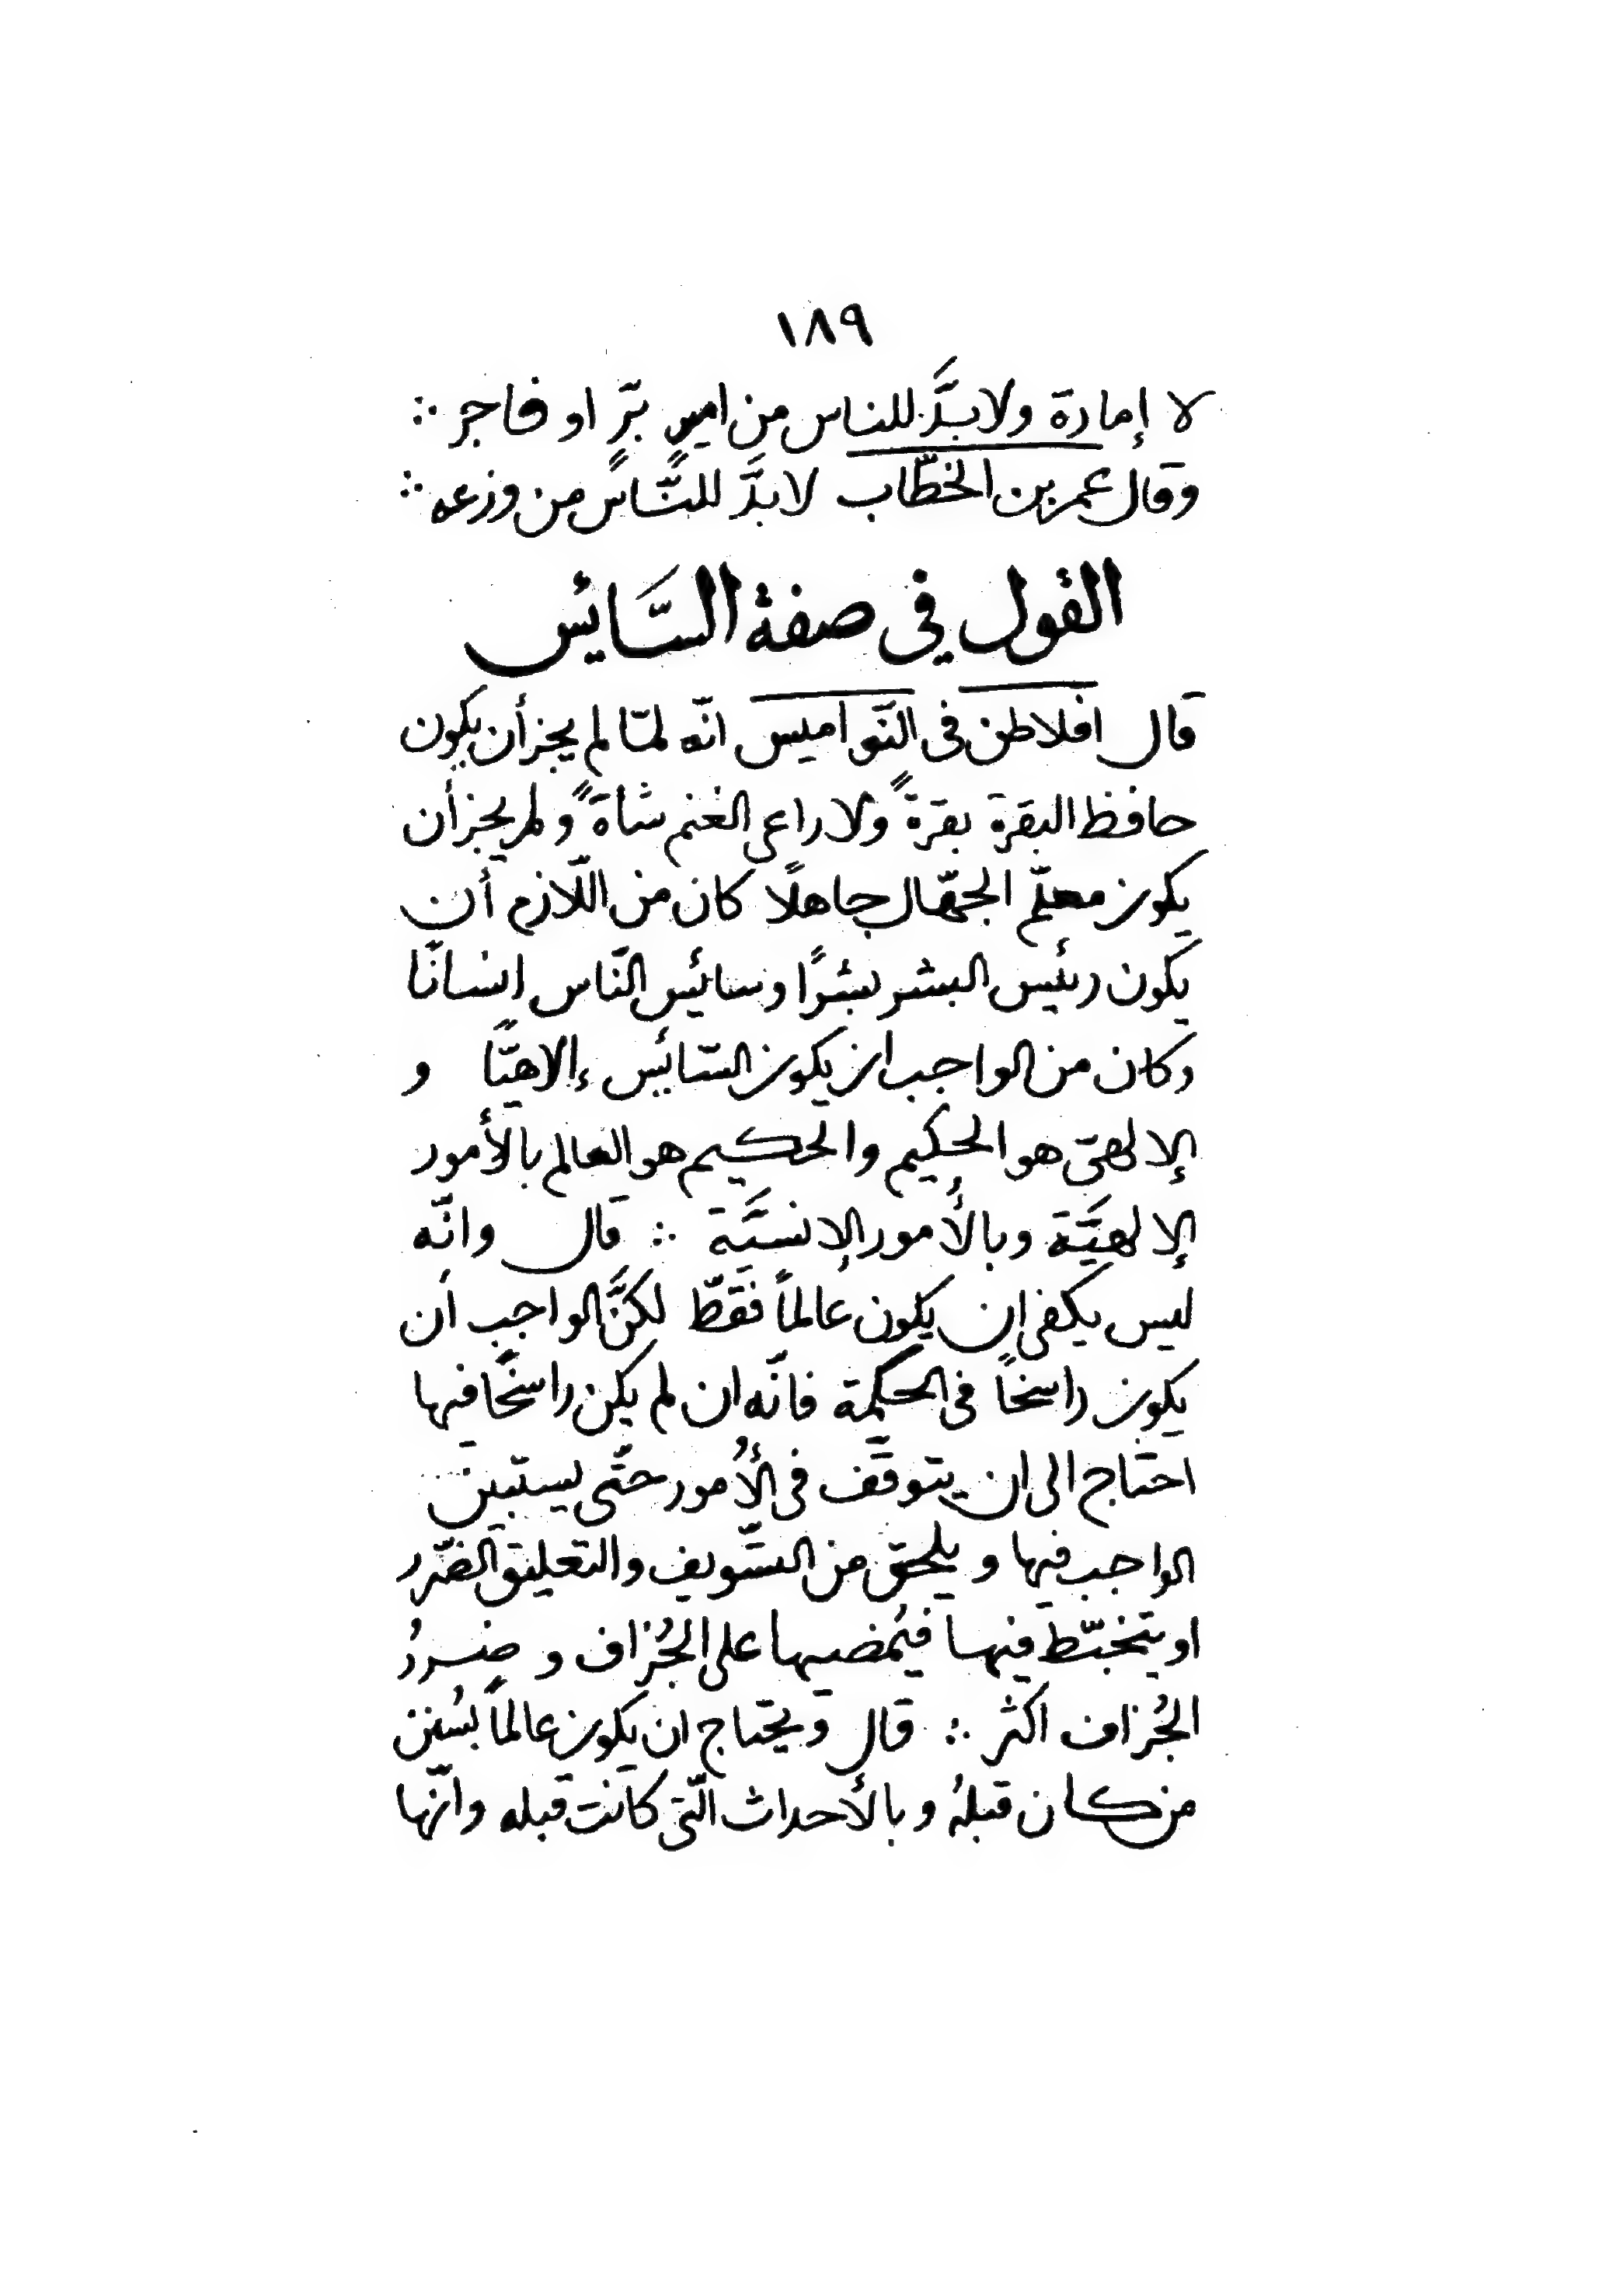 ١٨٩
لا إمارة ولا بدَّ للناس من امير برّ او فاجر ∴
وقال عمر بن الخطّاب لا بدَّ للنَّاس من وزعه ∴
القول في صفة السَّائس
قال افلاطن في النّواميس انّه لمّا لم يجز أن يكون
حافظ البقرة بقرةً ولا راعى الغنم شاةً ولم يجز أن
يكون معلّم الجهّال جاهلًا كان من اللّازم أن
يكون رئيس البشر بشرًا وسائس النّاس إنسانًا
وكان من الواجب ان يكون السّائس إلاهيًّا و
الإلهىّ هو الحكيم والحكيم هو العالم بالأمور
الإلهيَّة وبالأمور الإنسيَّة ∴ قال وانّه
ليس يكفى ان يكون عالماً فقطّ لكنَّ الواجب أن
يكون راسخاً فى الحكمة فانّه ان لم يكن راسخًا فيها
احتاج الى ان يتوقَّف فى الأُمور حتّى يستبين
الواجب فيها ويلحق من التّسويف والتعليق الضّرر
او يتخبّط فيها فيُمضيها على الجُزاف و ضررُ
الجُزاف اكثر ∴ قال ويحتاج ان يكون عالماً بسُنن
من كان قبلهُ وبالأحداث الّتى كانت قبله وانّها